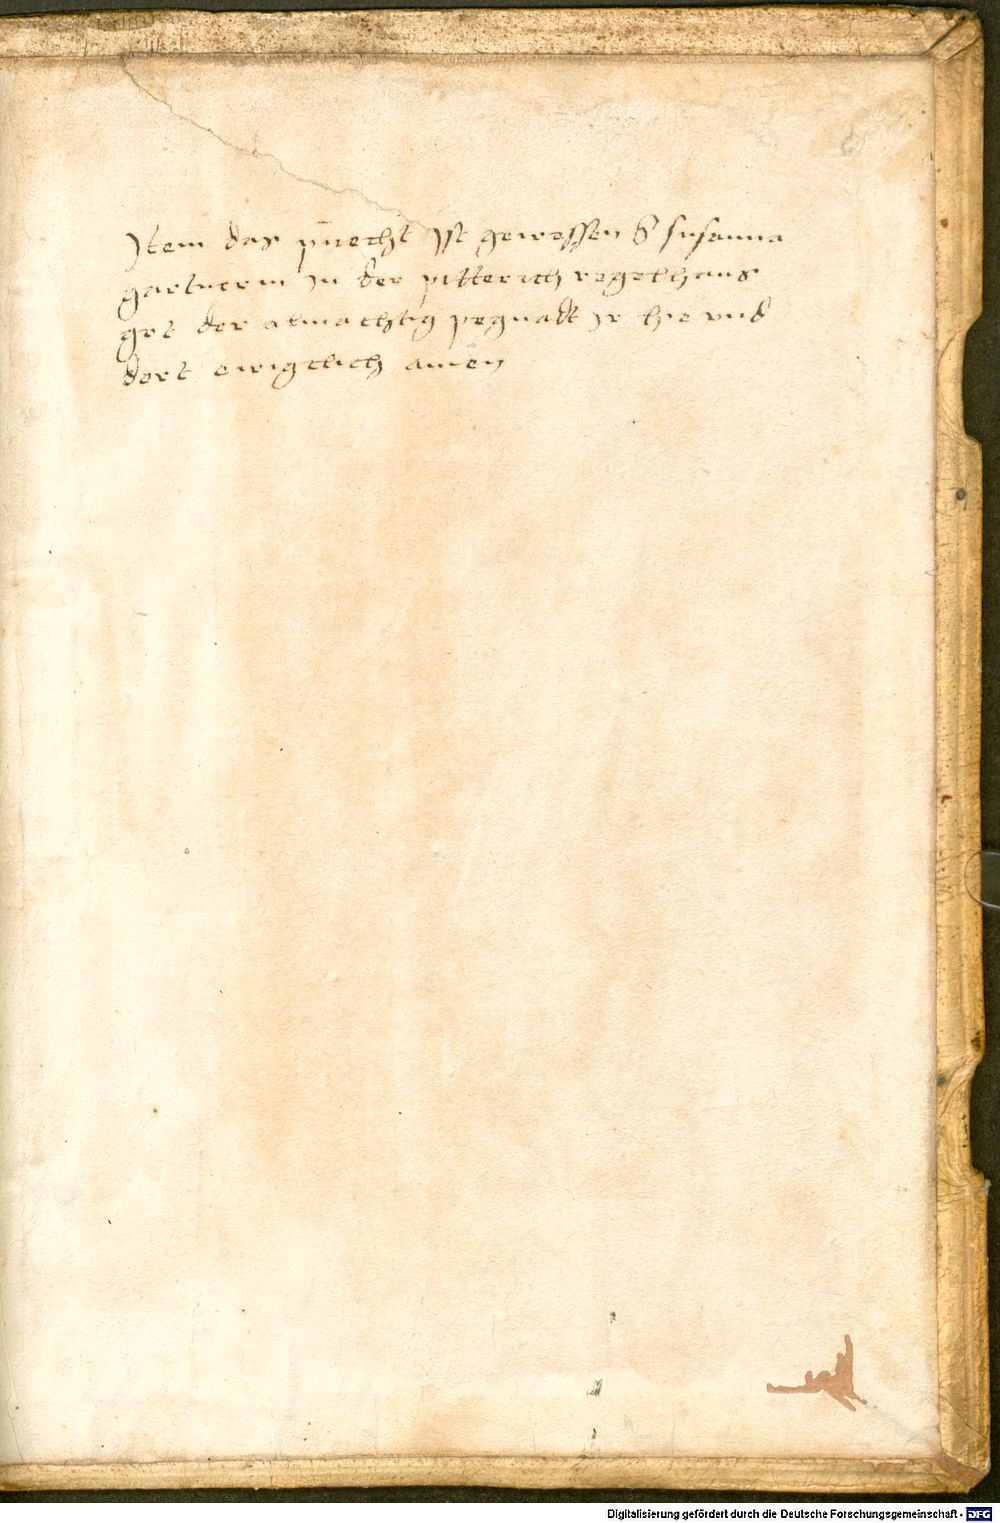 Jtem das puͤecht Jst gewessen d' susanna
gartnerin Jn der pitterich regelhaus
got der almachtig pegnadt Jr hie vnd
dort ewigclich amen
Digitalisierung gefördert durch die Deutsche Forschungsgemeinschaft - DFG